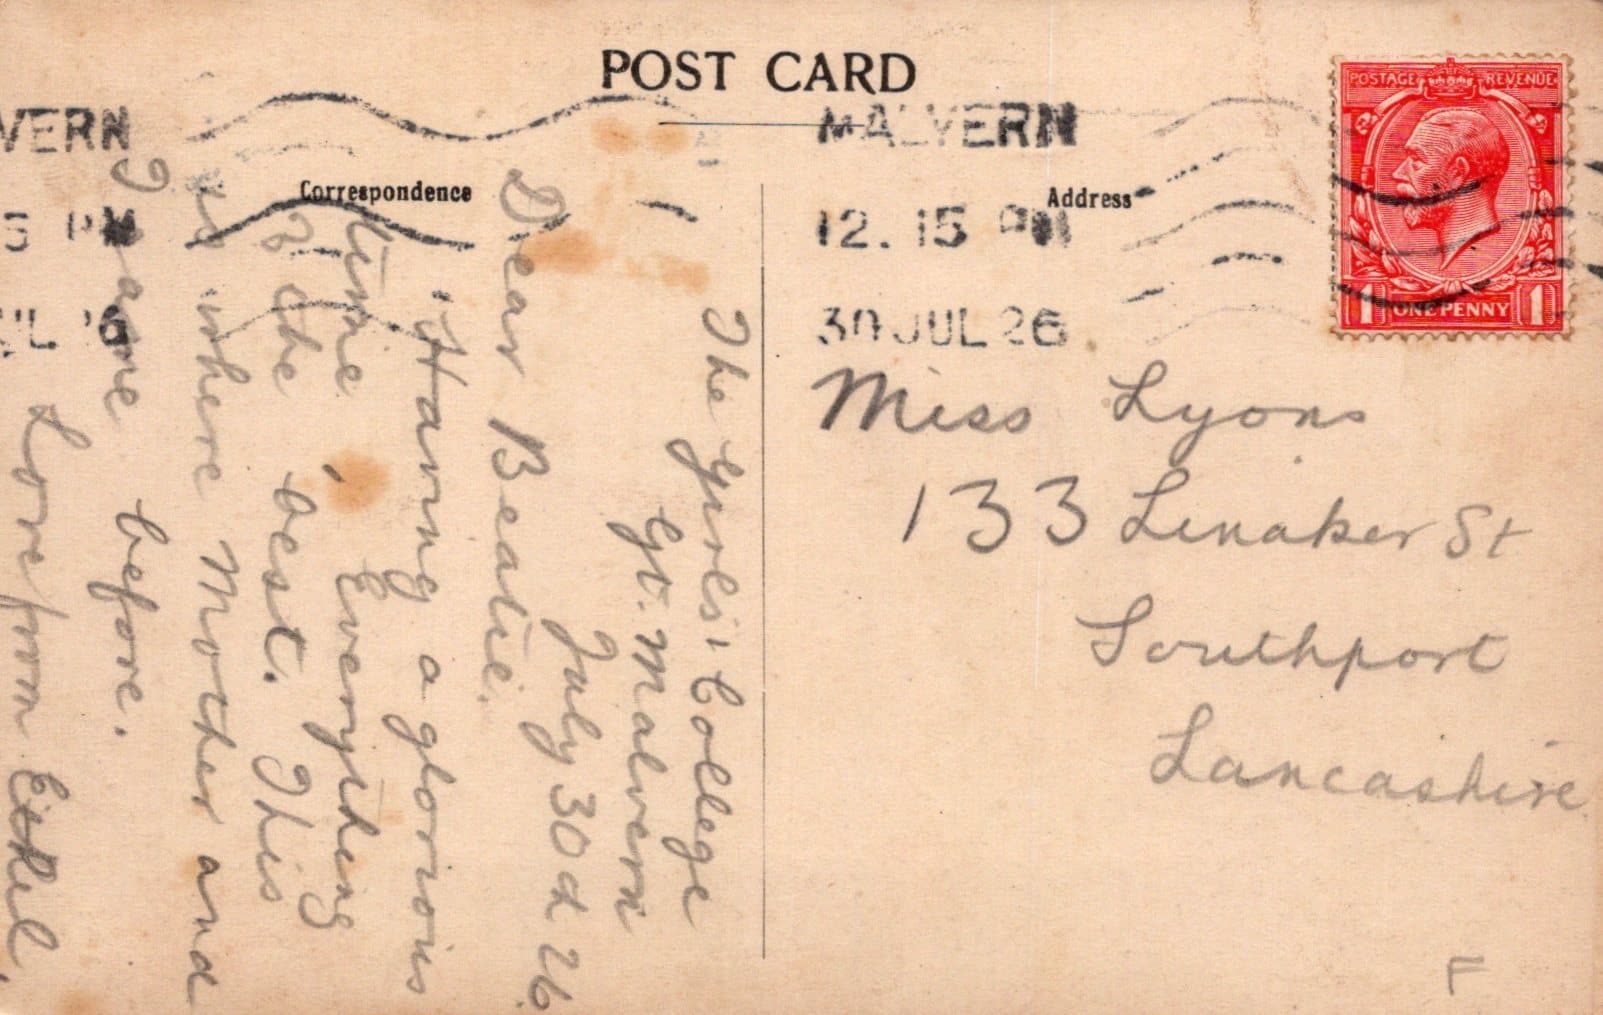 POST CARD
Correspondence
Address
POSTAGE REVENUE
1 ONE PENNY 1
MALVERN
12.15 PM
30 JUL 26
VERN
5 PM
UL 26
The Girls' College
Gt. Malvern
July 30th 26.
Dear Beatie.
Having a glorious
time, Everything
of the best. This
is where Mother and
I came before.
Love from Ethel.
Miss Lyons
133 Linaker St
Southport
Lancashire
F